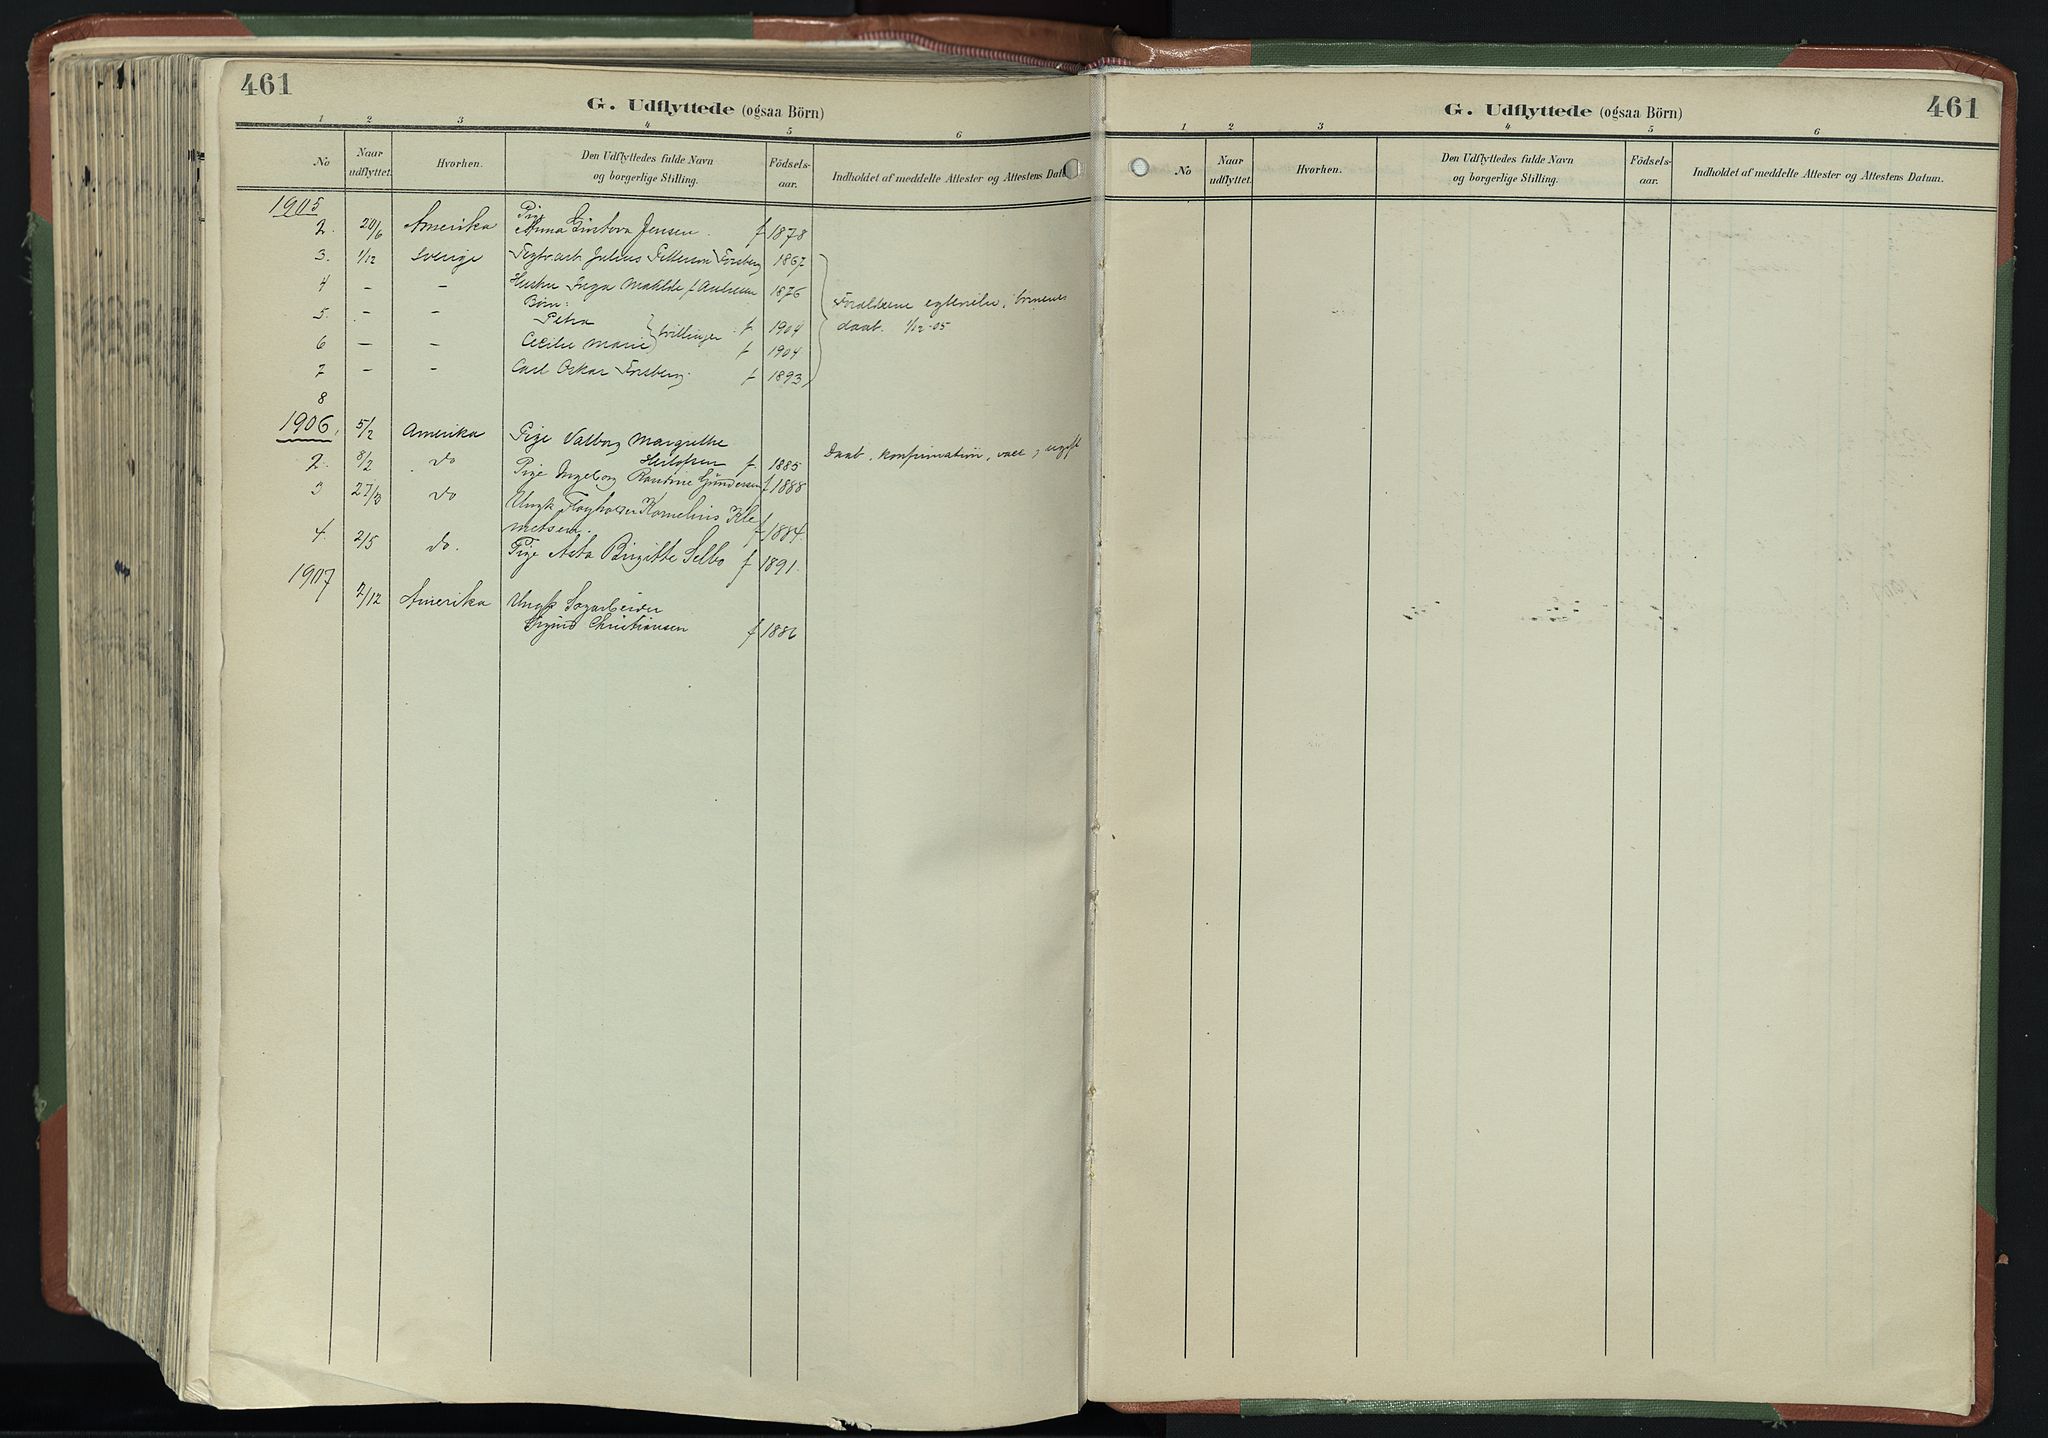 461
G. Udflyttede (ogsaa Börn)
1 2 3 4 5 6
No Naar udflyttet. Hvorhen. Den Udflyttedes fulde Navn og borgerlige Stilling. Födsels-aar. Indholdet af meddelte Attester og Attestens Dat
1905
Pige
2. 20/6 Amerika Anna Jensen. f 1878
3. 1/12 Sverige Julius Petterson Forsberg 1867
4 – – Hustru Inga Matilde f. 1876
Børn:
Forældrene , børnenes
5. – – Petra f. 1904
tvillinger
daab. 1/12-05
6 – – Cecilie Marie f 1904
7 – – Carl Oskar Forsberg. f 1893
8
1906. 5/2 Amerika Pige Valborg Margrethe
Herlofsen f. 1885 Daab, konfirmation, vacc. ugift
2. 8/2 do Pige Ingeborg Gundersen f 1888
3 27/3 do Ungk Kornelius Kle
metsen. f 1884.
4. 2/5 do. Pige Asta Birgitte Selbo f 1891.
1907
2/12 Amerika Ungk
Sigurd Christiansen f 1886
461
G. Udflyttede (ogsaa Börn)
1 2 3 4 5 6
No Naar udflyttet. Hvorhen. Den Udflyttedes fulde Navn og borgerlige Stilling. Födsels-aar. Indholdet af meddelte Attester og Attestens Datum.